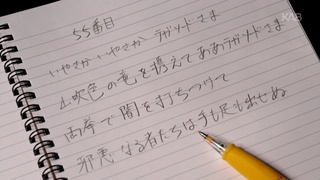 KAB
55番目
いやさか いやさか ラガソドさま
山吹色の竜を携えて ああラガソドさま
両拳で闇を打ちつけて
邪悪なる者たちは手も足も出せぬ